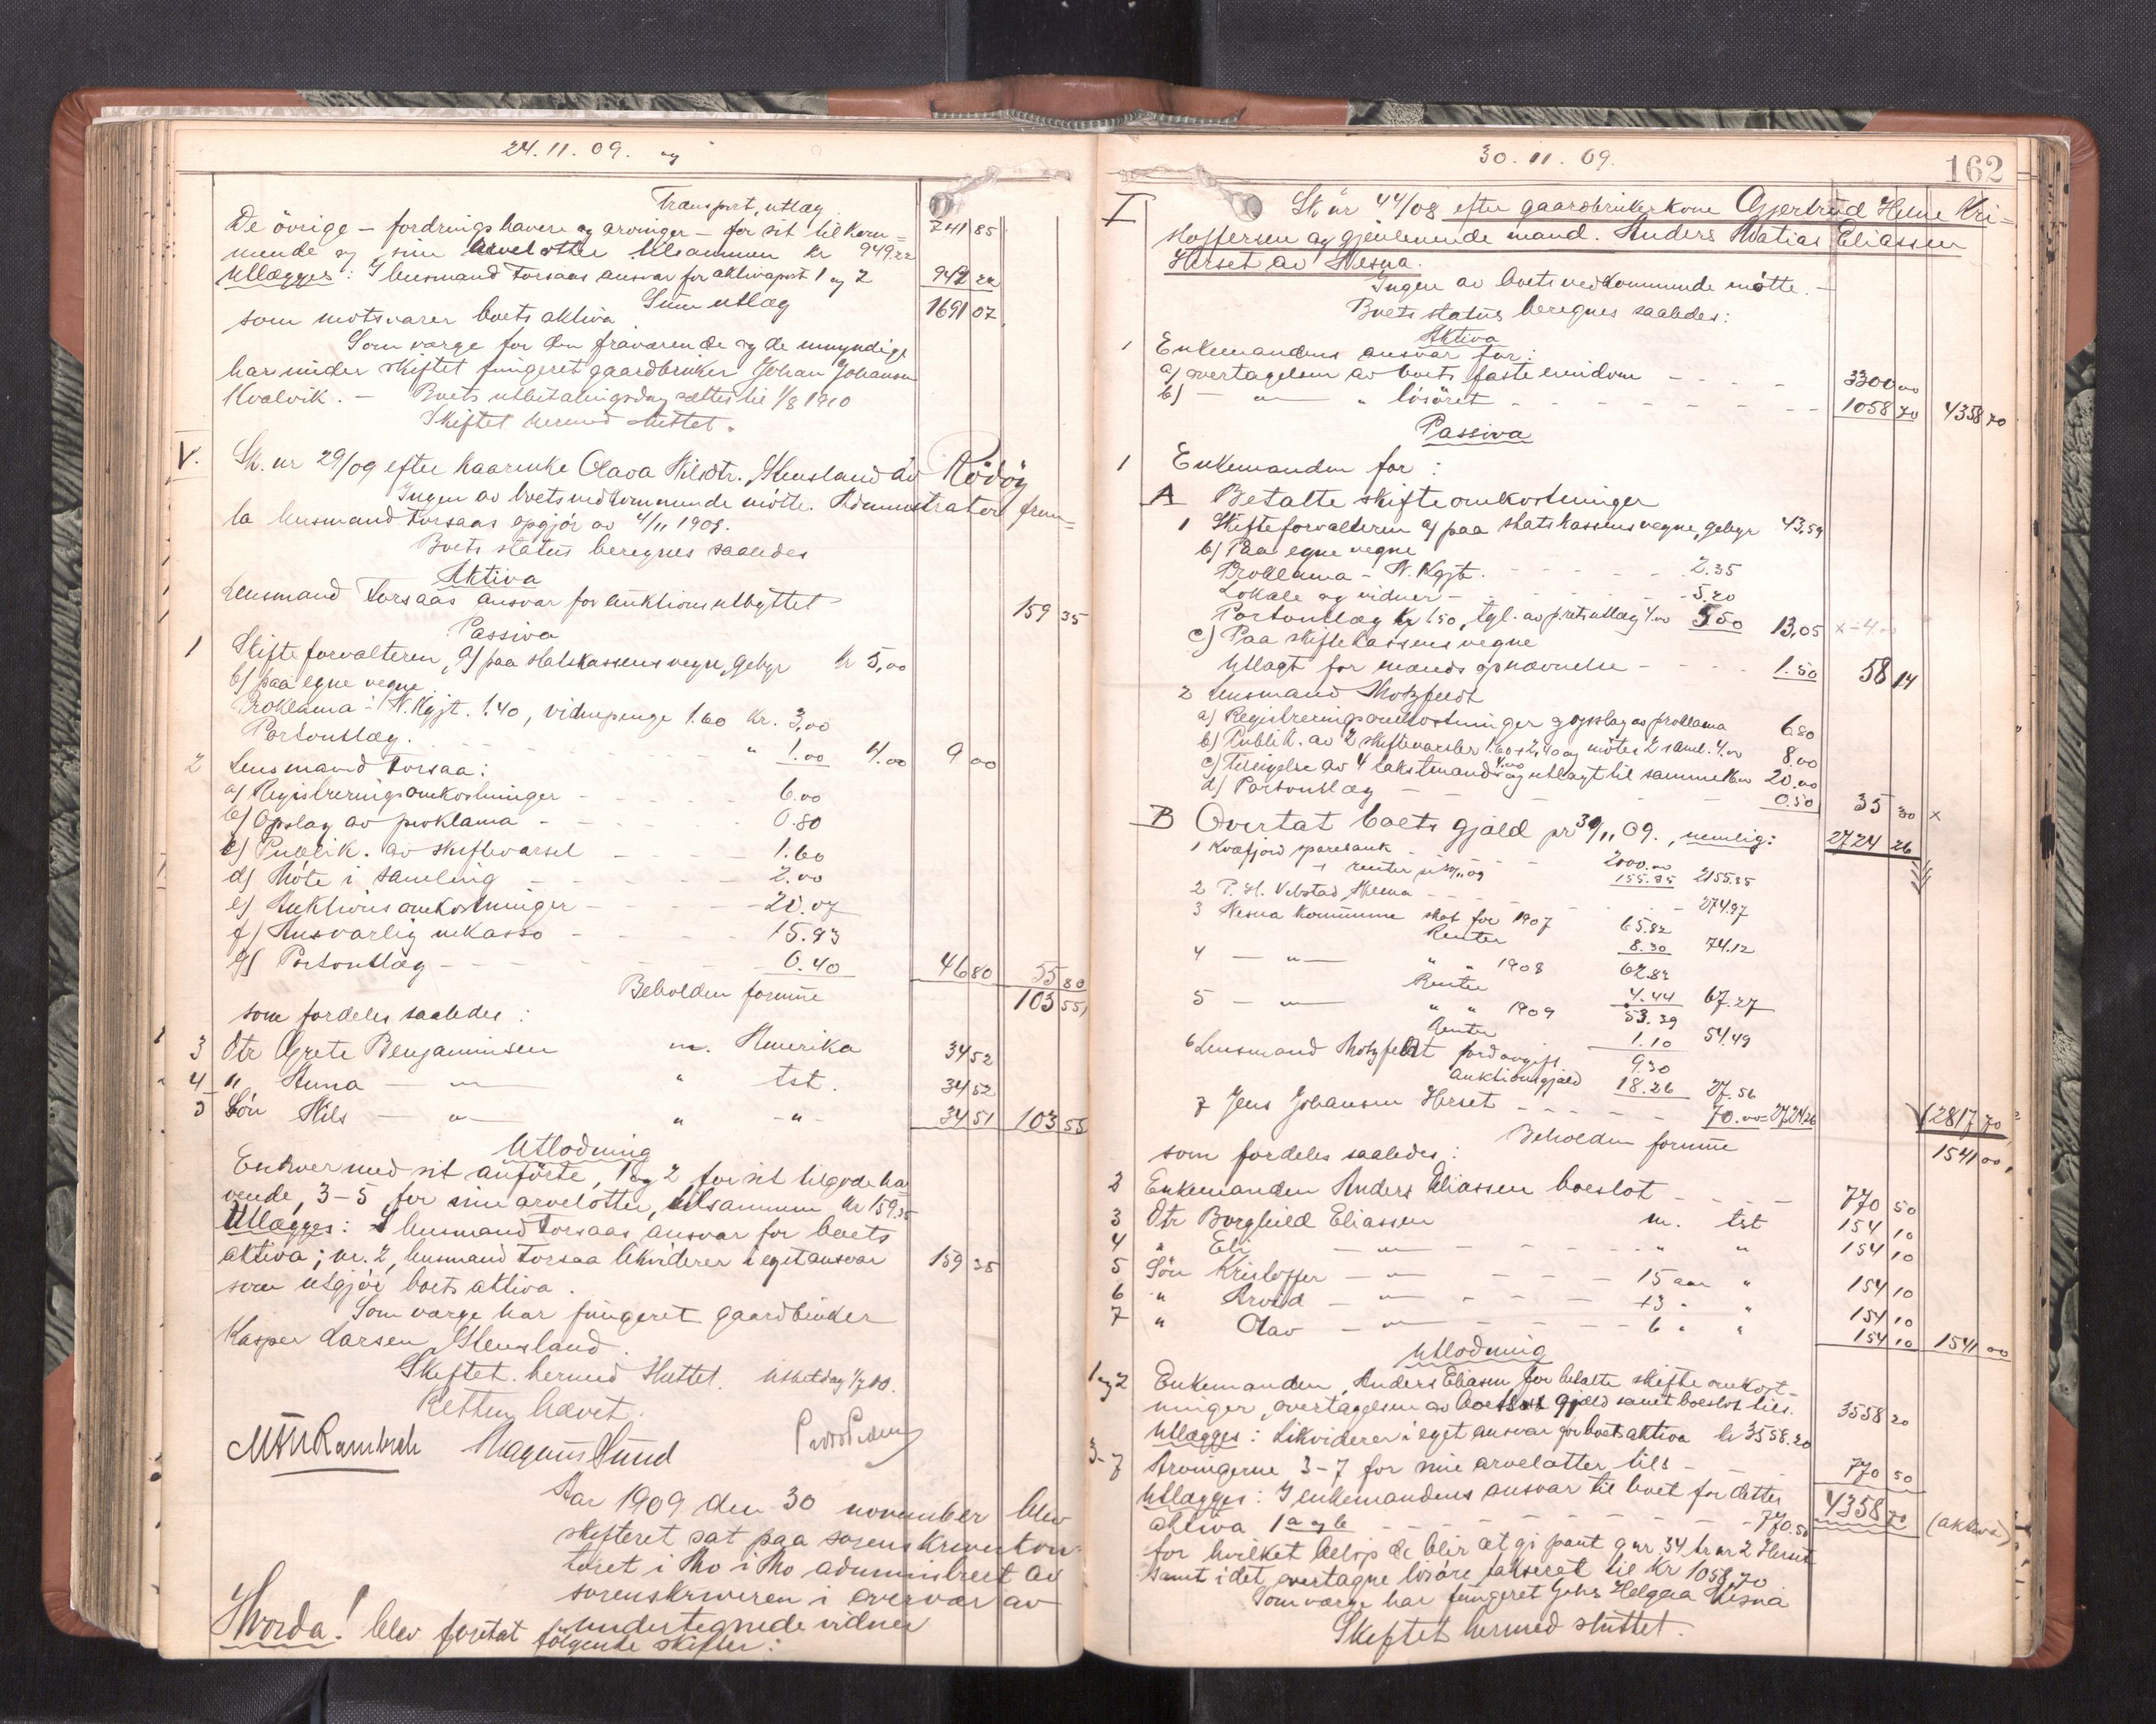 24.11.09. og
Transport, utlæg 741 85
De övrige – fordringshavere og arvinger – for sit tilkom=
mende og sine arvelotter tilsammen kr 949.22
Utlægges: I lensmand Torsaas ansvar for aktivapost 1 og 2 949 22
Sum utlæg
som motsvarer boets aktiva 1691 07
Som værge for den fraværende og de umyndige
har under skiftet fungeret gaardbruker Johan Johansen
Kvalvik. – Boets utbetalingsdag sættes til 1/8 1910
Skiftet hermed sluttet.
V. Sk. nr 29/09 efter kaarenke Olava Nilsdtr. Stensland av Rödöy
Ingen av boets vedkommende mötte. Administrator frem=
la lensmand Torsaas opgjör av 4/11 1909.
Boets status beregnes saaledes
Aktiva
1 Lensmand Torsaas ansvar for auktionsutbyttet 159 35
Passiva
1 Skifteforvalteren, a) paa statskassens vegne, gebyr kr 5,00
b) paa egne vegne
Proklama i N. Kgjt. 1.40, vidnepenge 1.60 kr. 3,00
Portoutlæg. " 1.00 4.00 9 00
2 Lensmand Torsaa:
a) Registreringsomkostninger – 6.00
b) Opslag av proklama – 0.80
c) Publik. av skiftevarsel – 1.60
d) Möte i samling – 2.00
e) Auktionsomkostninger – 20.07
f) Ansvarlig inkasso – 15.93
g) Portoutlæg – 0.40 46 80 55 80
Beholden formue 103 55
som fordeles saaledes:
3 Dtr Grete Benjaminsen m. Amerika 34 52
4 " Anna – " – " tst. 34 52
5 Sön Nils – " – " – " – 34 51 103 55
Utlodning
Enhver med sit anförte, 1 og 2 for sit tilgodeha
vende, 3–5 for sine arvelotter, tilsammen kr 159.35
Utlægges: I lensmand Torsaas ansvar for boets
aktiva; nr. 2, lensmand Torsaa likviderer i eget ansvar 159 35
som utgjör boets aktiva.
Som værge har fungeret gaardbruker
Kasper Larsen Stensland.
Skiftet hermed sluttet. Utbet.dag 1/7 10.
Retten hævet.
Magnus Sund
Aar 1909 den 30 november blev
skifteret sat paa sorenskriverkon=
toret i Mo i Mo administrert av
sorenskriveren i overvær av
undertegnede vidner
Hvorda! blev foretat fölgende skifter:
30.11.09. 162
I Sk nr 44/08 efter gaardbrukerkone Gjertrud Helene Kri=
stoffersen og gjenlevende mand. Anders Matias Eliassen
Herset av Nesna.
Ingen av boets vedkommende mötte. –
Boets status beregnes saaledes:
Aktiva
1 Enkemandens ansvar for:
a) overtagelsen av boets faste eiendom – 3300 00
b) – " – " lösöret – 1058 70 4358 70
Passiva
1 Enkemanden for:
A Betalte skifteomkostninger
1 Skifteforvalteren a) paa statskassens vegne, gebyr 43,59
b) Paa egne vegne
Proklama – N. Kgjt. 2.35
Lokale og vidner – 5.20
Portoutlæg kr 1.50, tgl. av pretsutlæg 4.00 5.50 13,05 x – 4.00
c) Paa skiftekassens vegne
Utlagt for mænds opnævnelse – 1.50 58 14
2 Lensmand Motzfeldt
a) Registreringsomkostninger og opslag av proklama 6.80
b) Publik. av 2 skiftevarsler 1.60 + 2,40 og möter 2 saml. 4.00 8.00
c) Tilsigelse av 4 takstmænd 4.00 og utlagt til samme 16.00 20.00
d) Portoutlæg – 0.50 35 30 x
B Overtat boets gjæld pr 30/11 09., nemlig: 2724 26
1 Kvæfjord sparebank 2000.00
+ renter til 30/11 09 155.85 2155.85
2 P. H. Velstad Nesna – 274.97
3 Nesna kommune skat for 1907 65.82
Renter 8.30 74.12
4 – " – " " 1908 62.82
Renter 4.44 67.27
5 – " – " " 1909 53.39
Renter 1.10 54.49
6 Lensmand Motzfeldt jordavgift 9.30
auktionsgjæld 18.26 27.56
7 Jens Johansen Herset – 70.00 = 2724.26 2817 70
Beholden formue 1541 00
som fordeles saaledes:
2 Enkemanden Anders Eliassen boeslot – 770 50
3 Dtr Borghild Eliassen m. tst 154 10
4 " Eli – " – " " 154 10
5 Sön Kristoffer – " – 15 aar " 154 10
6 " Arvid – " – 13 " " 154 10
7 " Olav – " – 6 " " 154 10 1541 00
Utlodning
1 og 2 Enkemanden, Anders Eliassen for betalte skifteomkost-
ninger, overtagelsen av boets gjæld samt boeslot tils. 3558 20
Utlægges: Likviderer i eget ansvar for boets aktiva kr 3558.20
3–7 Arvingerne 3–7 for sine arvelotter tils – 770 50
Utlægges: I enkemandens ansvar til boet for dettes 4358 70 (aktiva)
aktiva 1 a og b – 770.50
for hvilket belöp der blir at gi pant i gnr 34 brnr 2 Herset
samt i det overtagne lösöre takseret til kr 1058,70
Som værge har fungeret Johs Helgaa Nesna
Skiftet hermed sluttet.